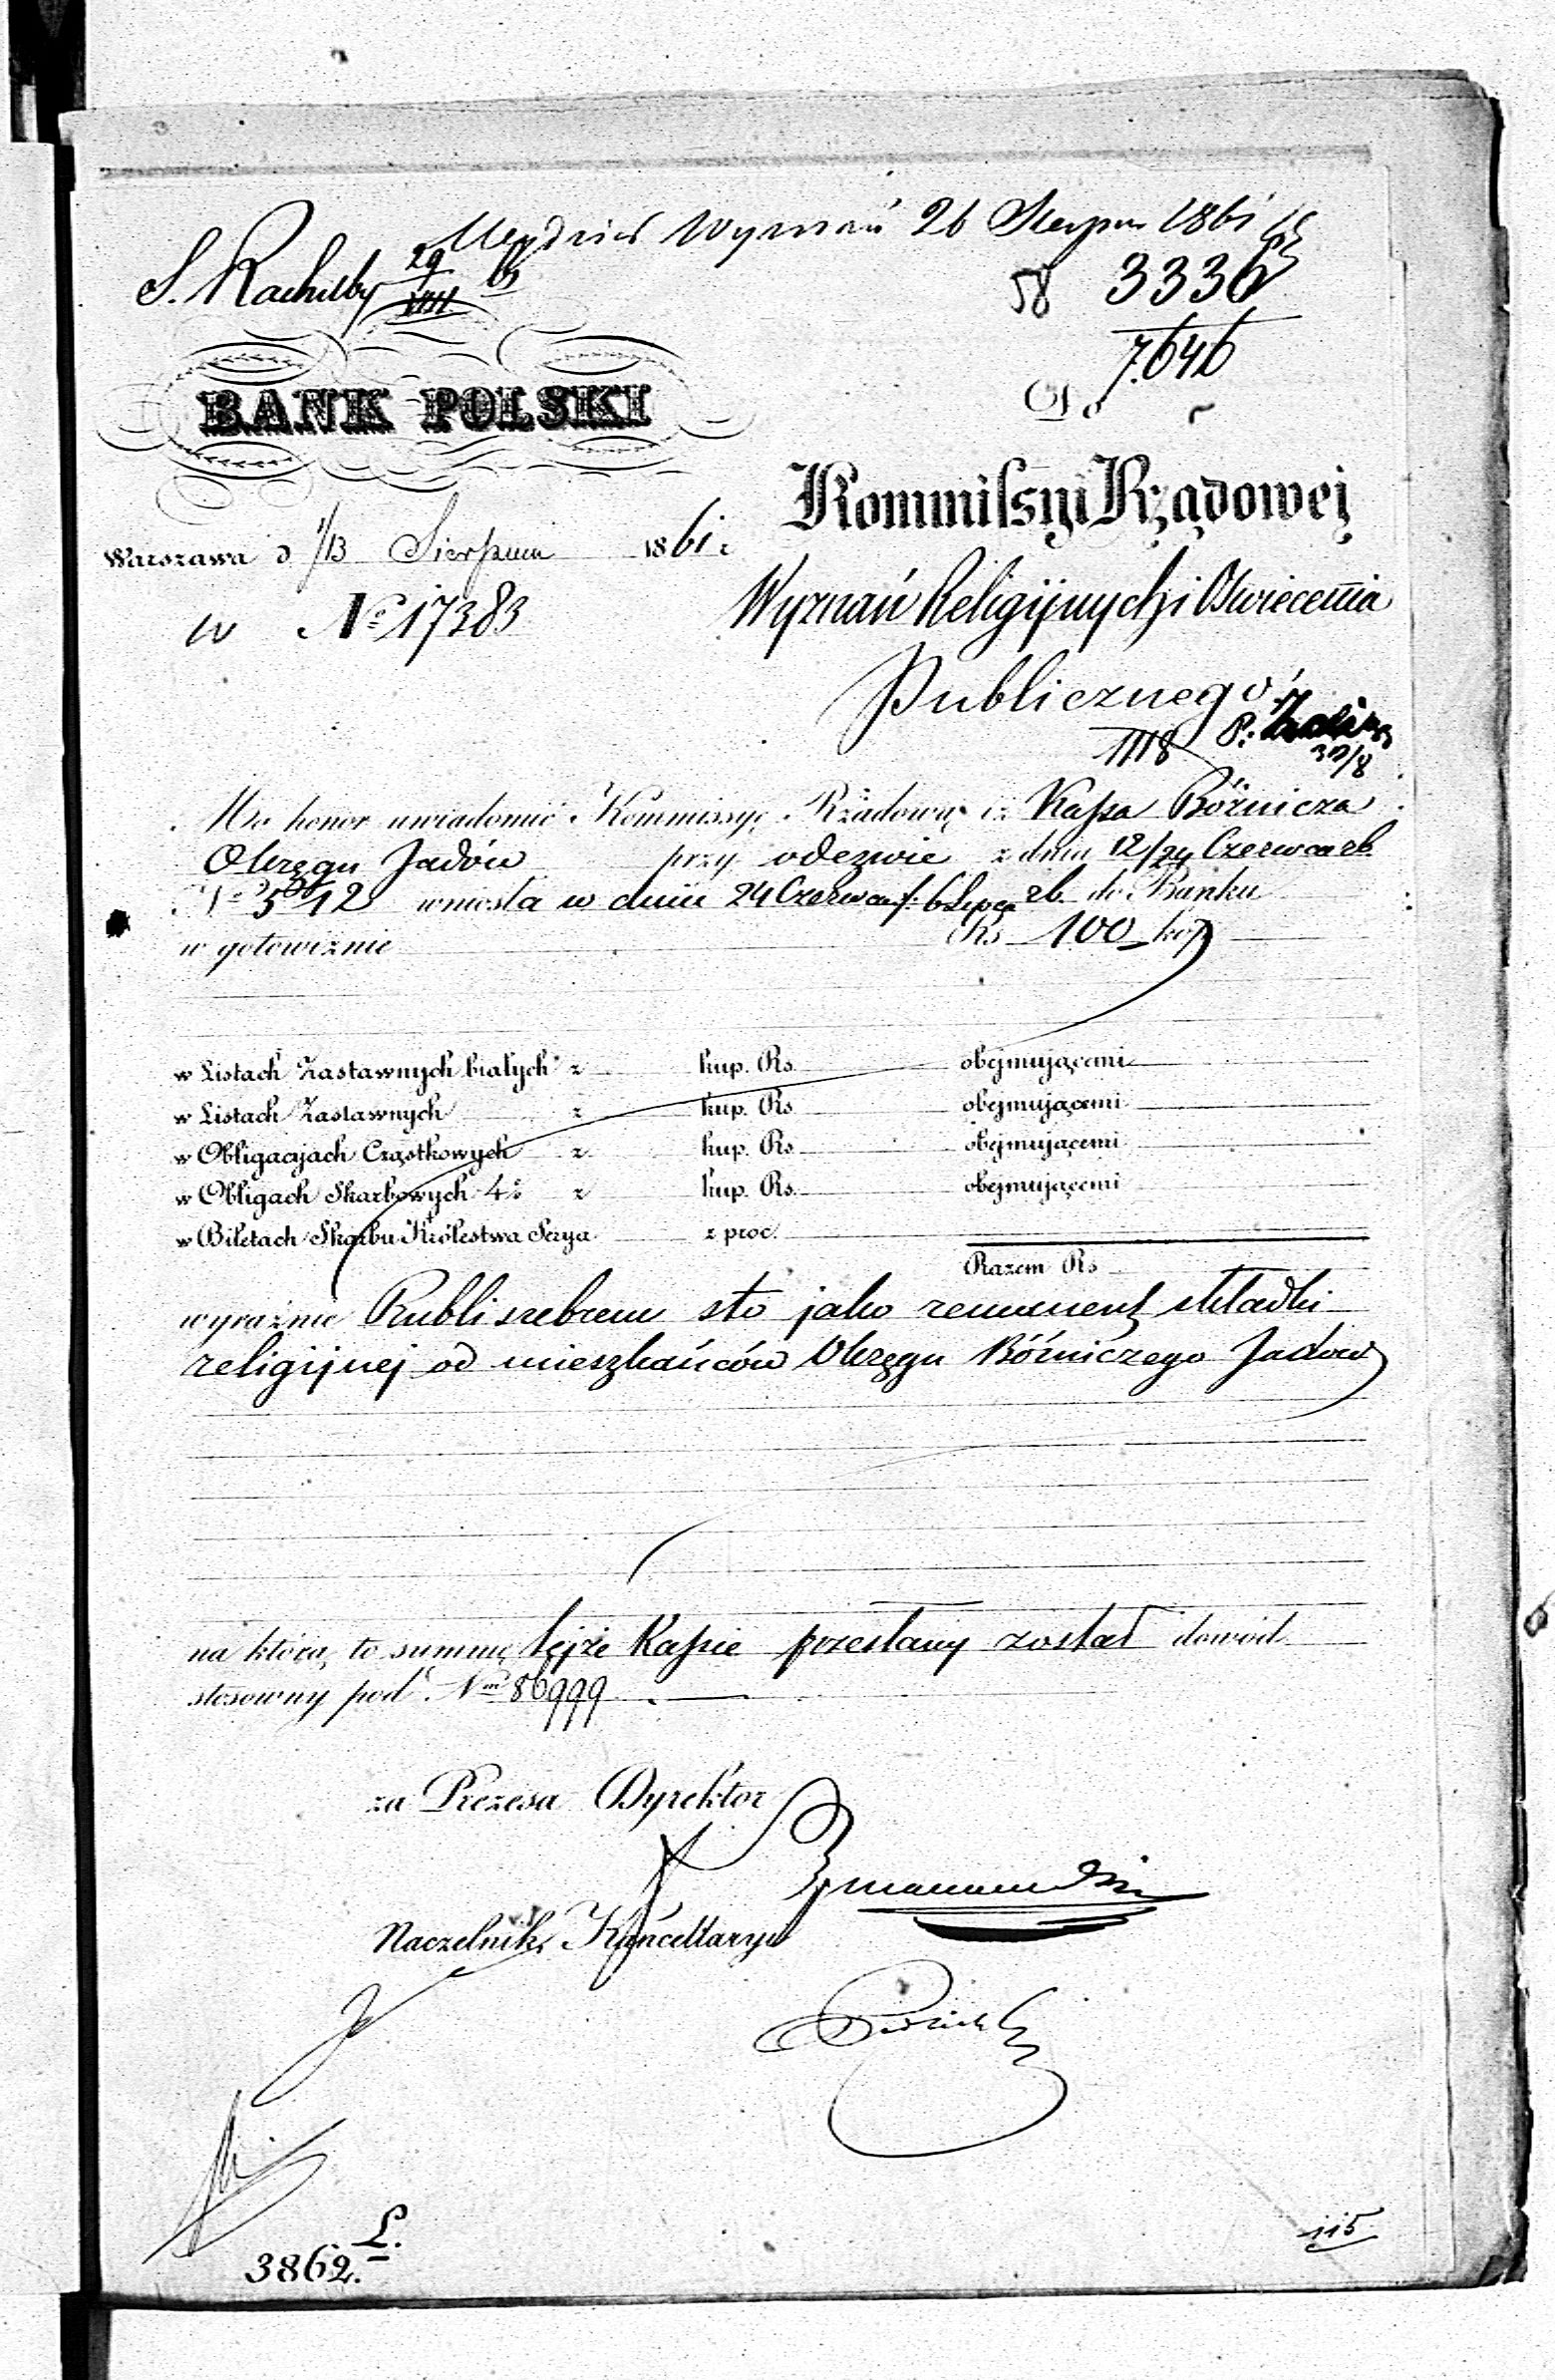 Wyznań 26 Sierpn 1861
S. Rachuby 29/VIII 61
58 3336
7.646
BANK POLSKI
Do
Kommissyi Rządowej
Warszawa d 1/13 Sierpnia 1861 r.
Wyznań Religijnych i Oświecenia
w № 17383
Publicznego
1118 P.
30/8
Ma honor uwiadomić Kommissyę Rządową iż Kassa Bóźnicza
Okręgu Jadów przy odezwie z dnia 12/24 Czerwca rb.
№ 5 12 wniosła w dniu 24 Czerwca/: 6 Lipca rb. do Banku
w gotowiźnie Rs 100 kop
w Listach Zastawnych białych z kup. Rs. obejmującemi
w Listach Zastawnych z kup. Rs obejmującemi
w Obligacyjach Cząstkowych z kup. Rs obejmującemi
w Obligach Skarbowych 4% z kup. Rs. obejmującemi
w Biletach Skarbu Królestwa Serya z proc.
Razem Rs
wyraźnie Rubli srebrem sto jako remanent składki
religijnej od mieszkańców Okręgu Bóźniczego Jadow
na którą to summę tejże Kassie przesłany został dowód
stosowny pod Nm 86999
za Prezesa Dyrektor
Naczelnik Kancellaryi
L.
3862.
115